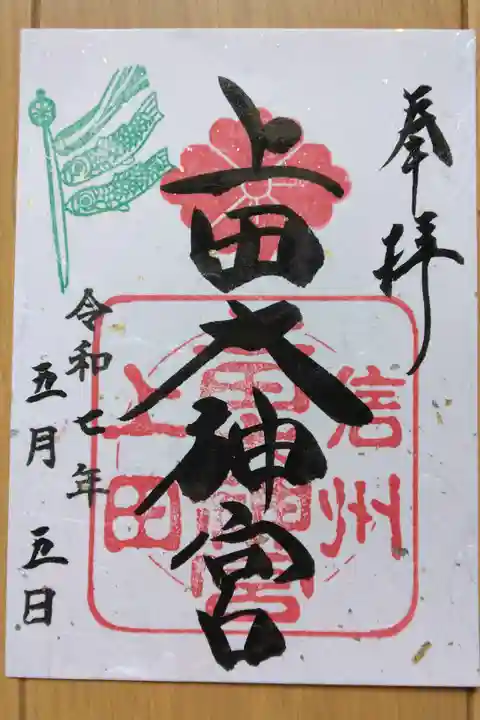 奉拝
上田大神宮
信州
上田
令和七年
五月五日